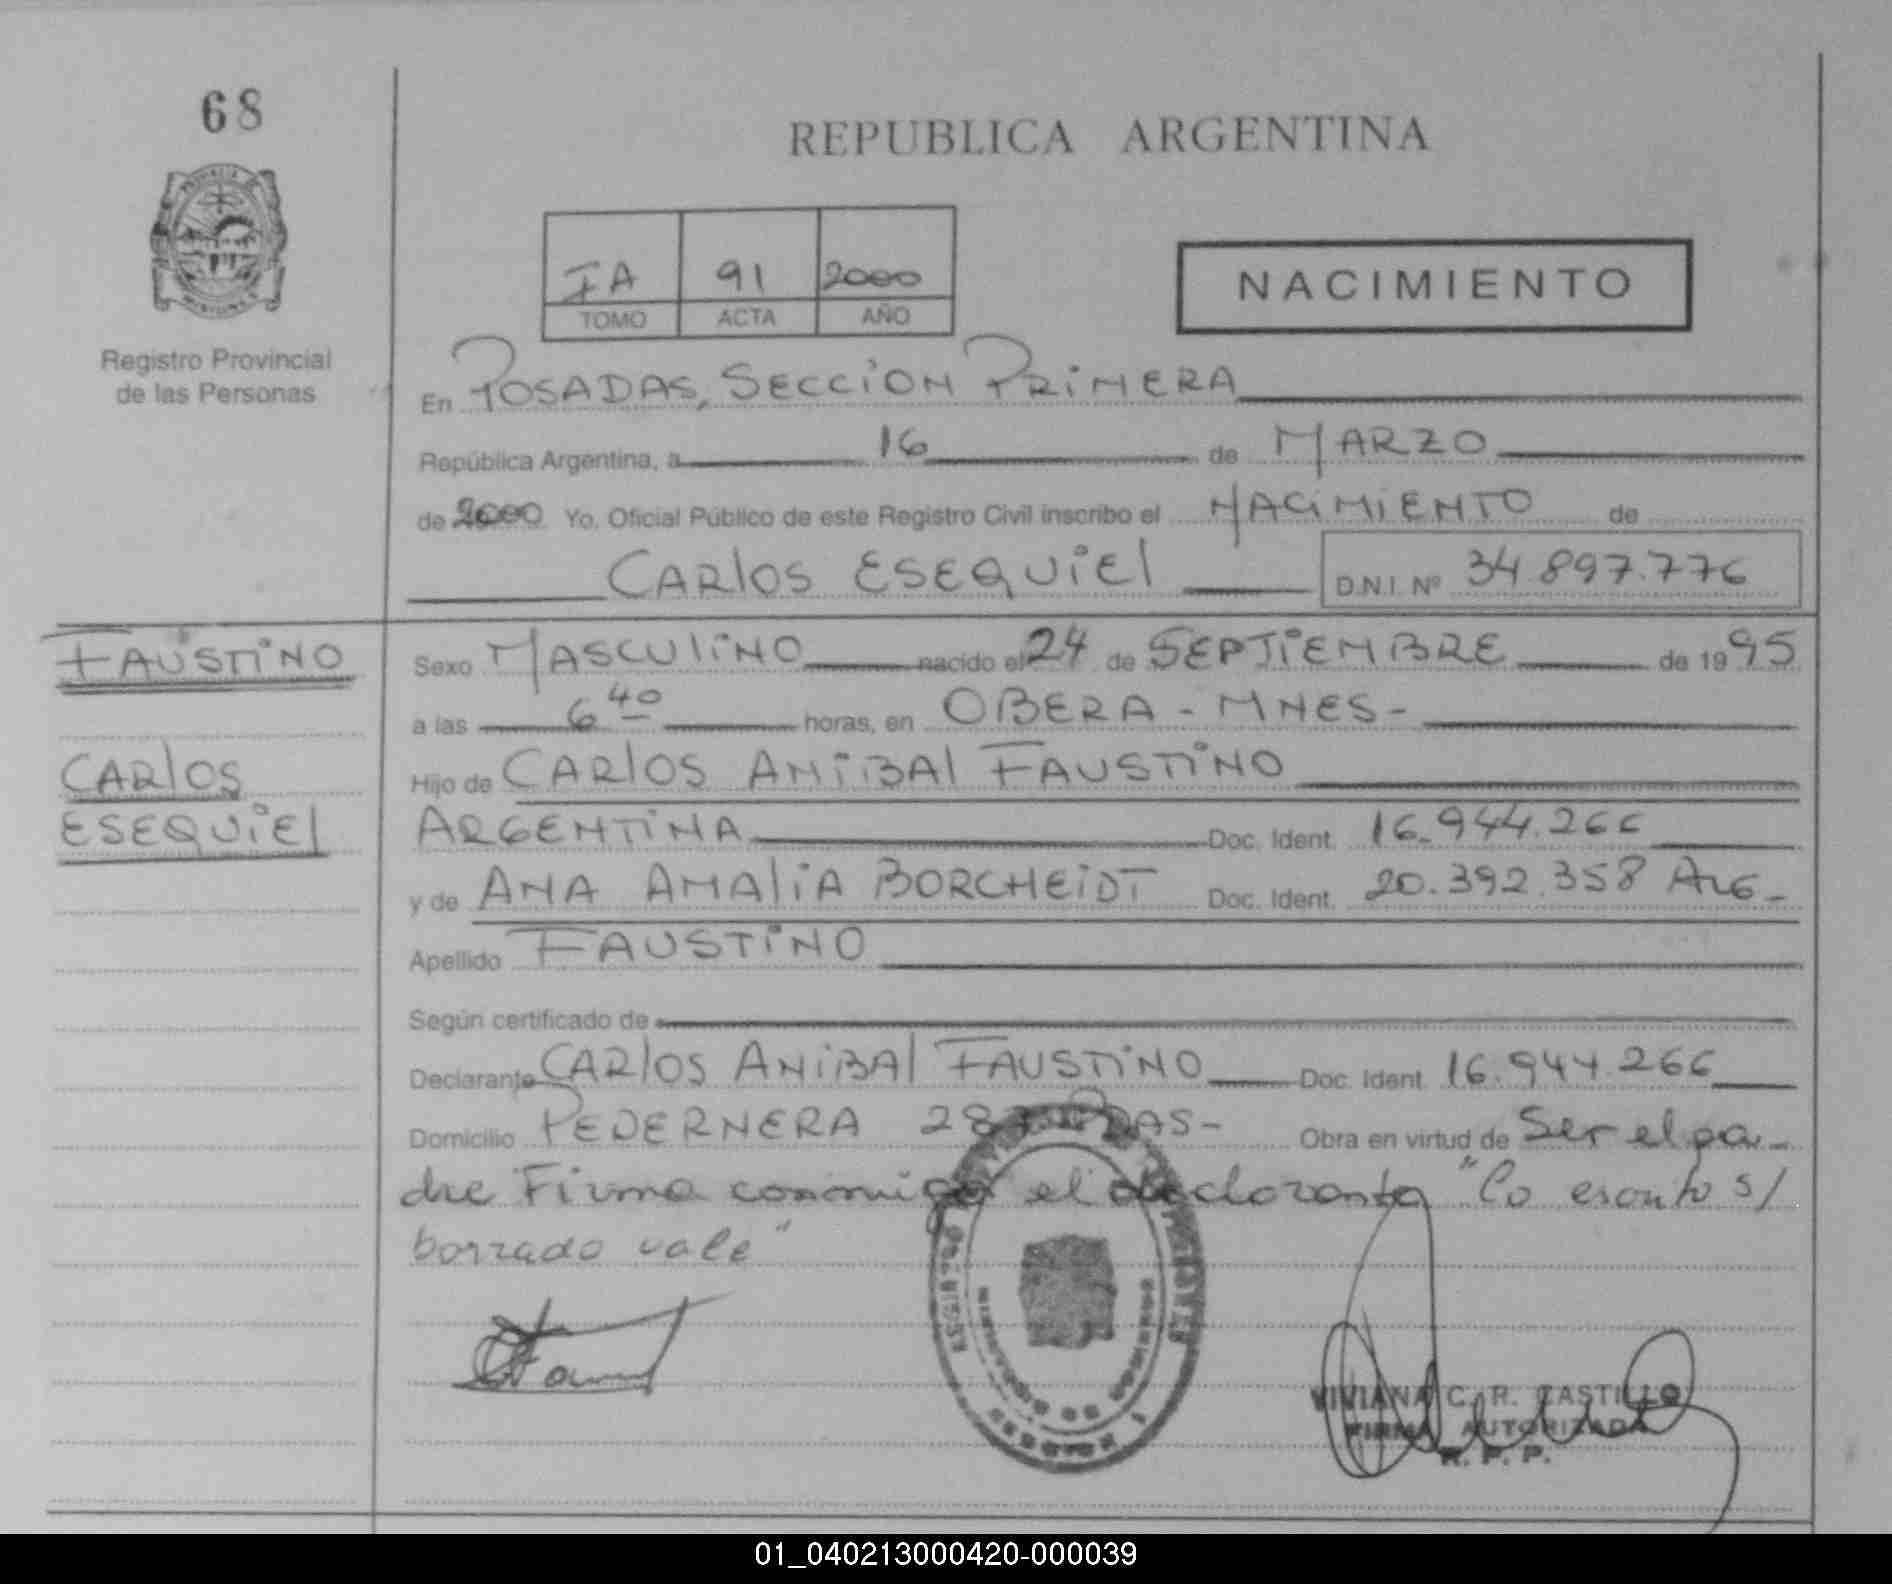 68
REPUBLICA ARGENTINA
IA 91 2000
TOMO ACTA AÑO
NACIMIENTO
Registro Provincial
de las Personas
En POSADAS, SECCION PRIMERA
República Argentina, a 16 de MARZO
de 2000 Yo, Oficial Público de este Registro Civil inscribo el NACIMIENTO de
CARLOS ESEQUIEL D.N.I. Nº 34.897.776
FAUSTINO
CARLOS
ESEQUIEL
Sexo MASCULINO nacido el 24 de SEPTIEMBRE de 1995
a las 6 40 horas, en OBERA - MNES -
Hijo de CARLOS ANIBAL FAUSTINO
ARGENTINA Doc. Ident. 16.944.266
y de ANA AMALIA BORCHEIDT Doc. Ident. 20.392.358 ARG -
Apellido FAUSTINO
Según certificado de
Declarante CARLOS ANIBAL FAUSTINO Doc. Ident. 16.944.266
Domicilio PEDERNERA PDAS - Obra en virtud de Ser el pa-
dre Firma conmigo el declarante "Lo escrito s/
borrado vale"
VIVIANA C. R. CASTILLO
FIRMA AUTORIZADA
R. P. P.
01_040213000420-000039